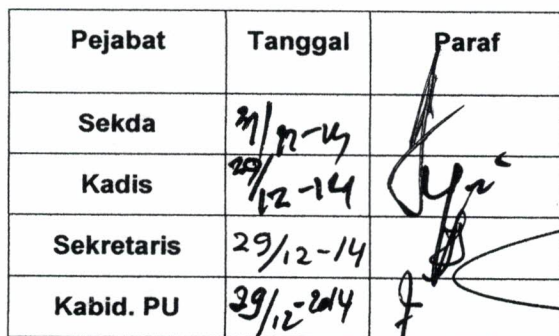 Pejabat Tanggal Paraf
Sekda
Kadis 29/12-14
Sekretaris 29/12-14
Kabid. PU 29/12-2014